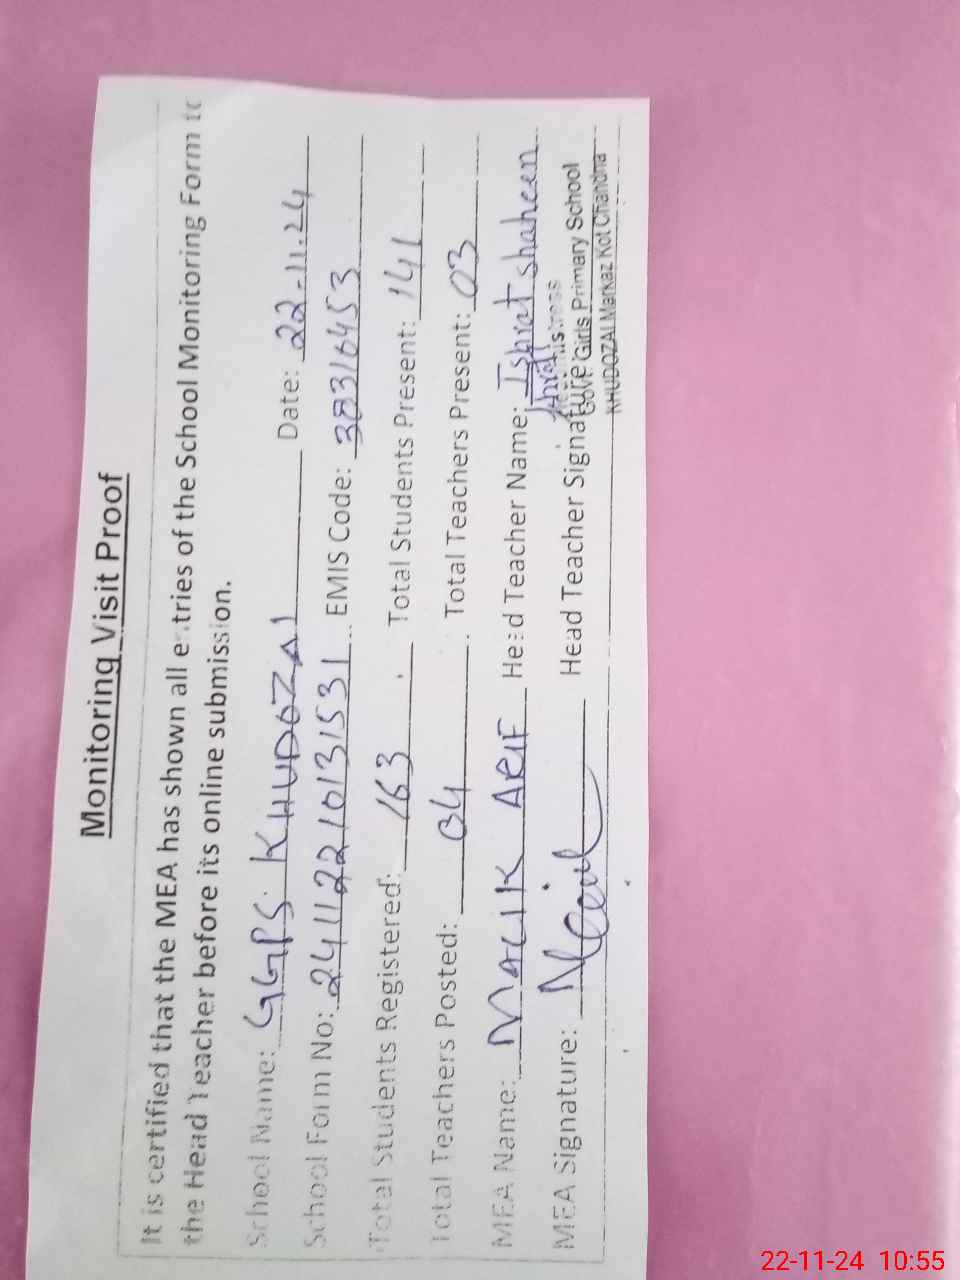 Monitoring Visit Proof
It is certified that the MEA has shown all entries of the School Monitoring Form to
the Head Teacher before its online submission.
School Name: GGPS KHUDOZAI Date: 22-11.24
School Form No: 24112210131531 EMIS Code: 38316453
Total Students Registered: 163 Total Students Present: 141
Total Teachers Posted: 04 Total Teachers Present: 03
MEA Name: MALIK ARIF Head Teacher Name: Ishrat shaheen
MEA Signature: Head Teacher Signature:
Govt Girls Primary School
KHUDOZAI Markaz Kot Chandna
22-11-24 10:55